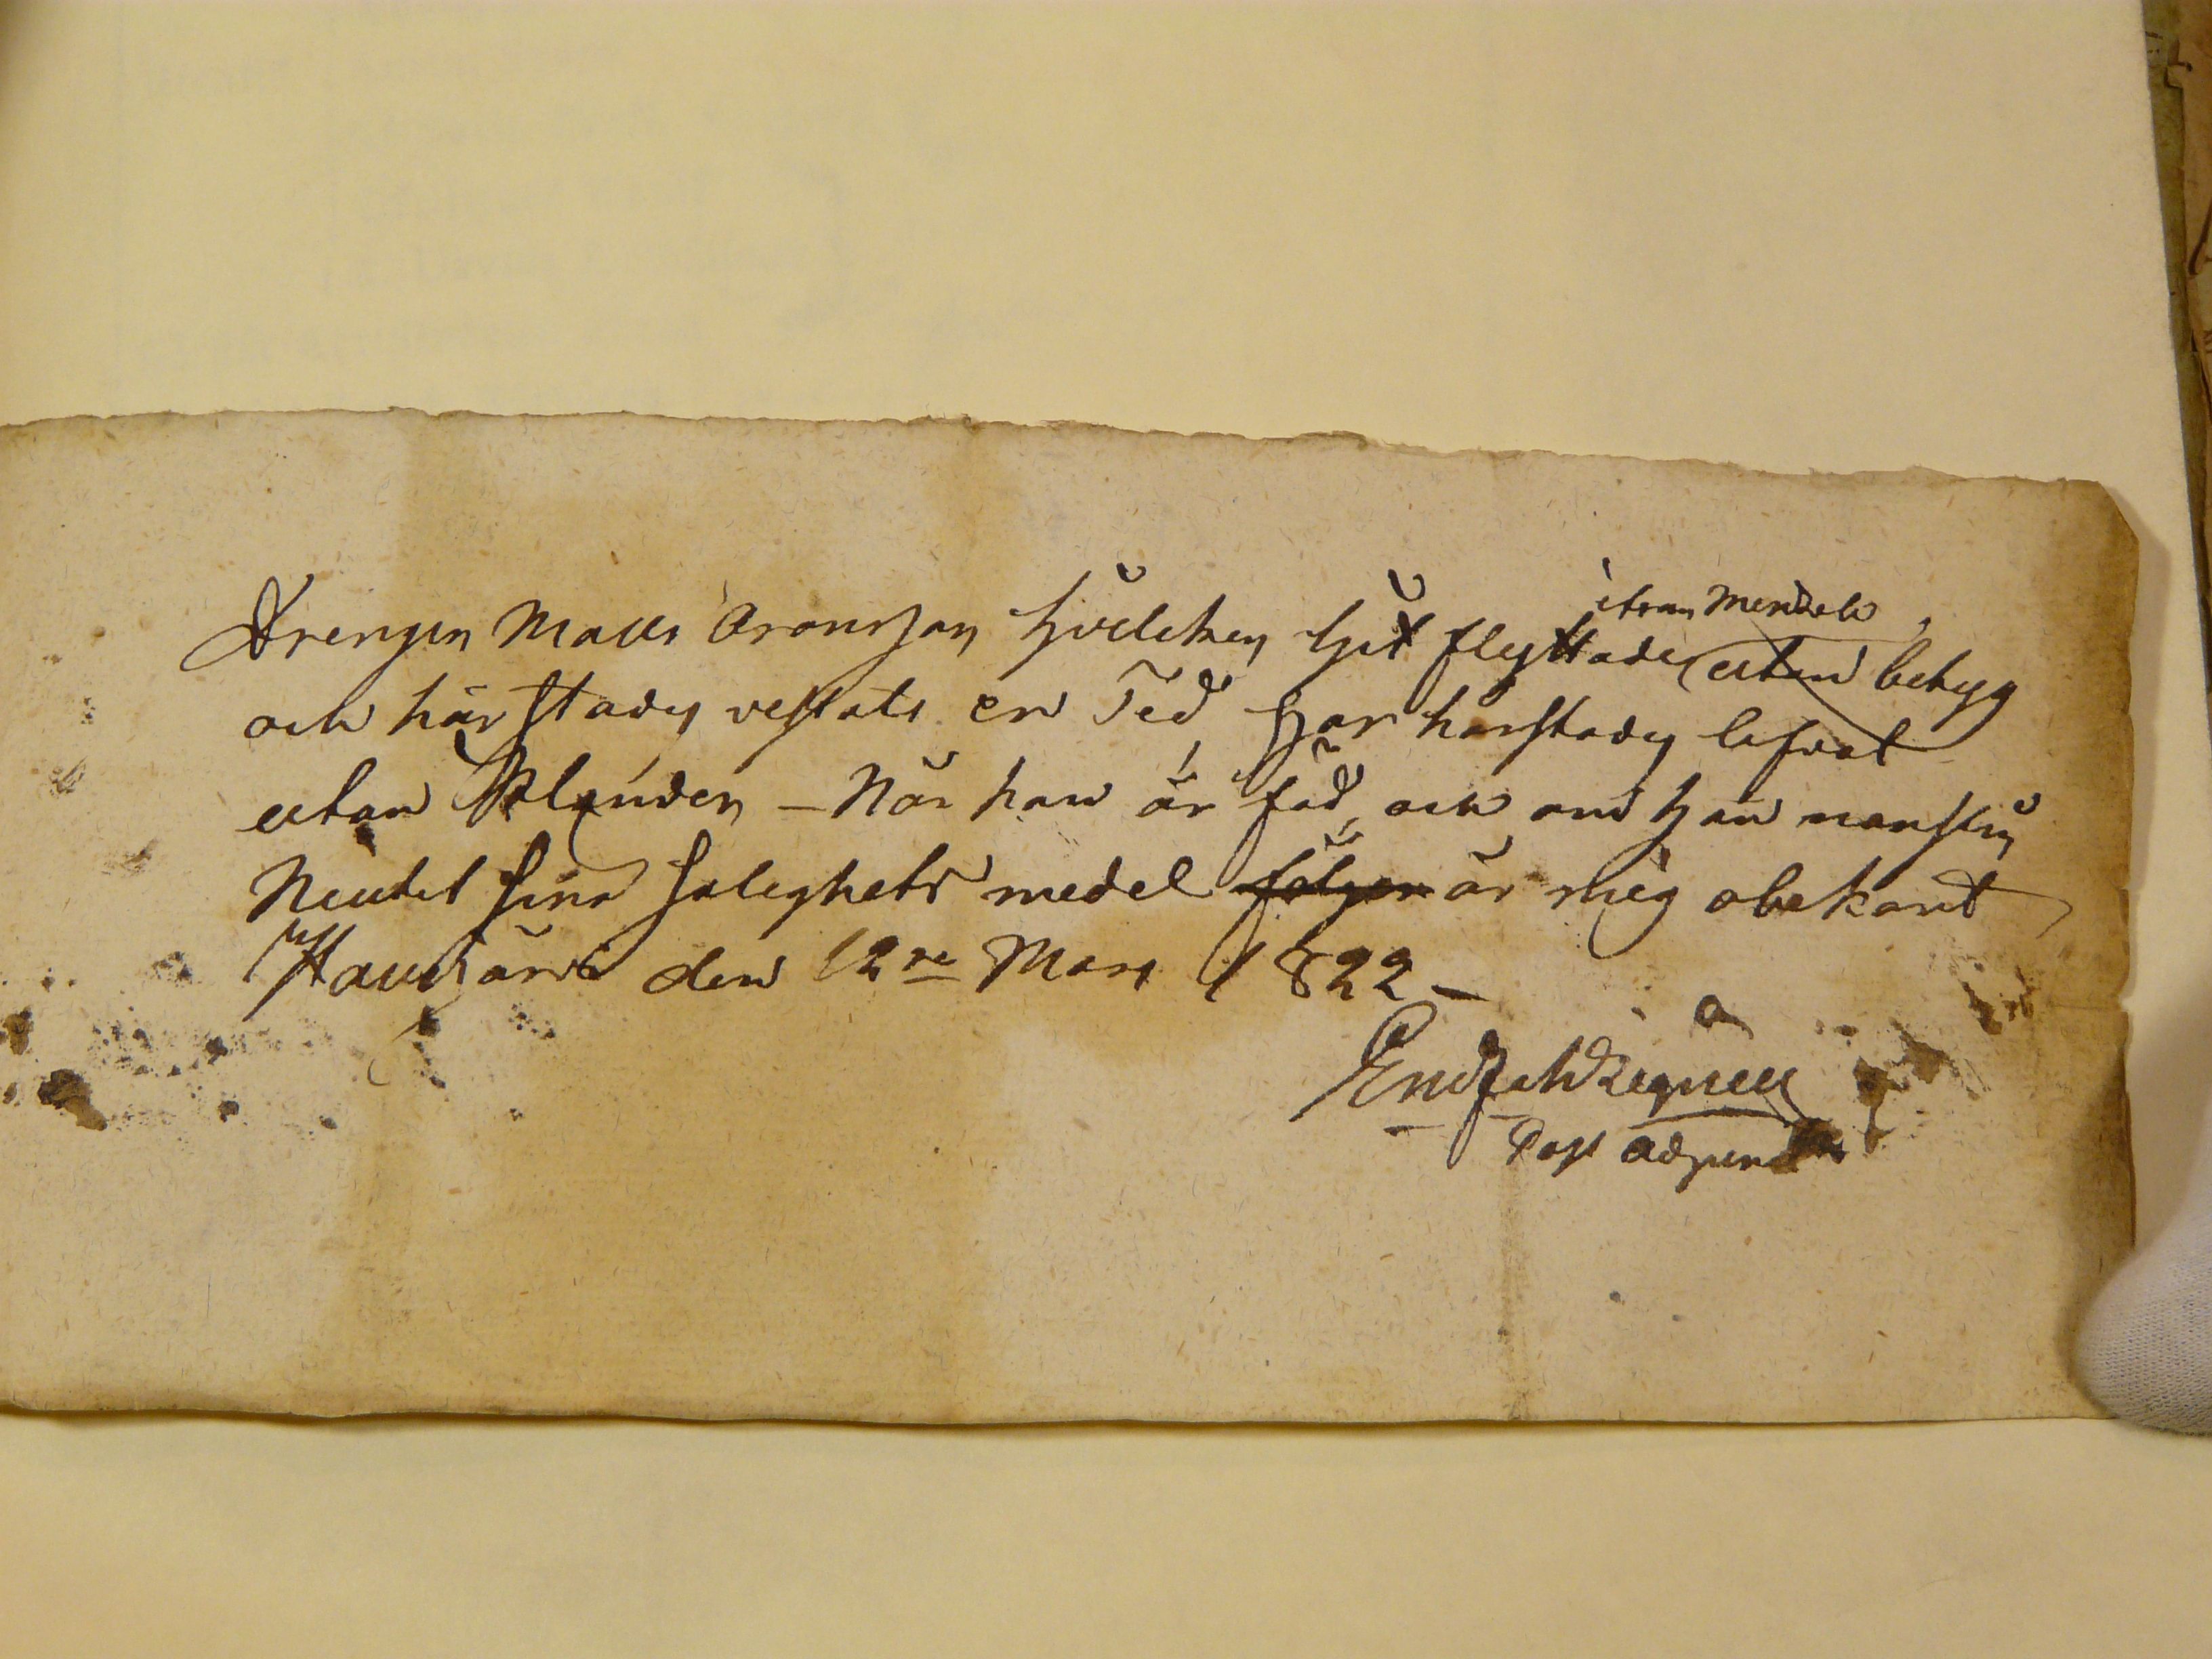 ifrån
Drengen Matts Aronsson hvilcken hit flyttade utan betyg
och härstädes vistats en Tid, har härstädes lefvat
utan Klander – När han är föd, och om han nensin
Niutit sina salighets medel följer är mig obekant
den 12te Mars 1822 –
Past adjunct